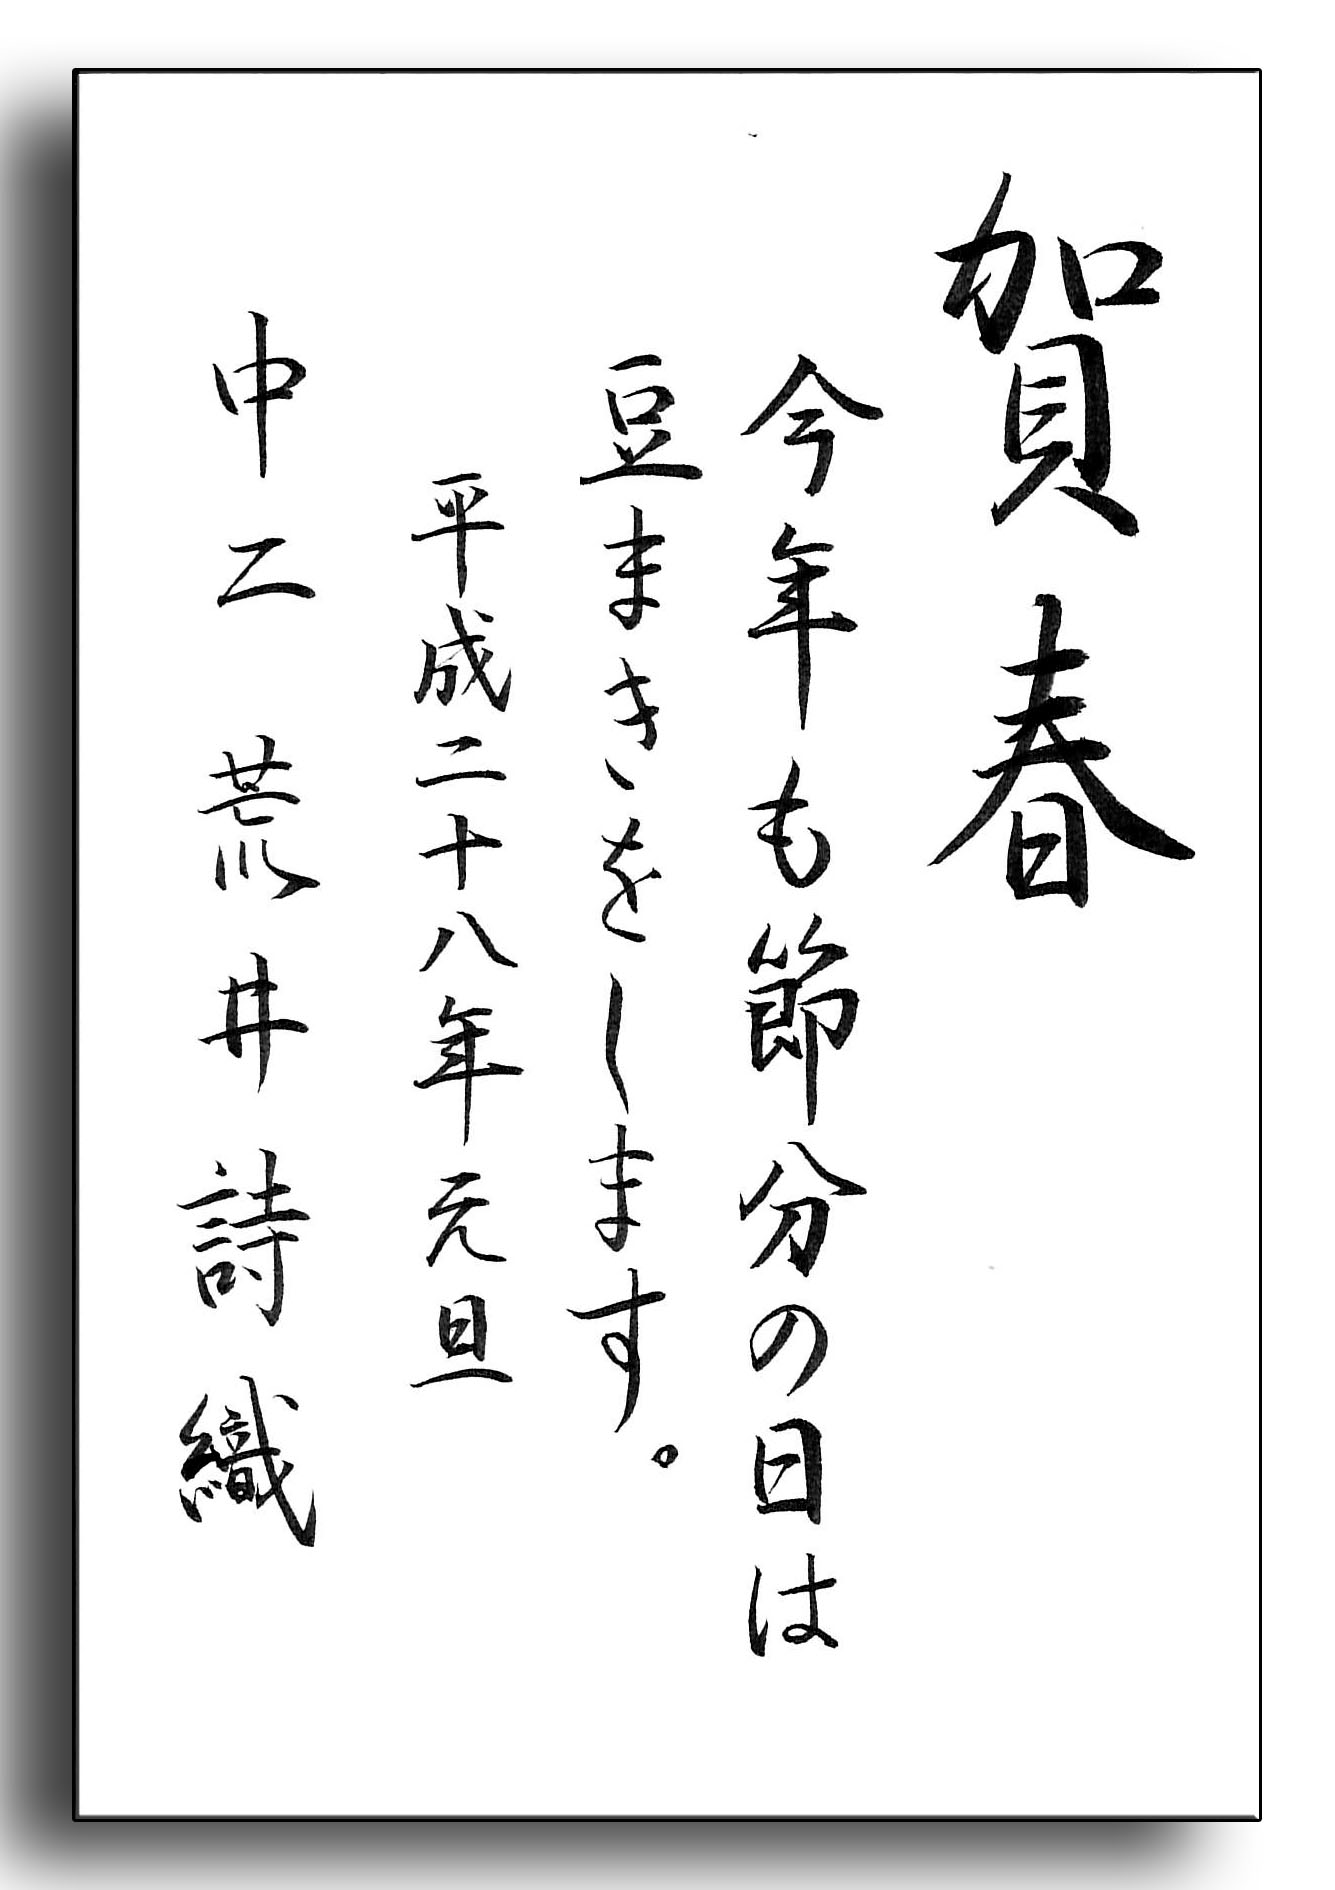 賀春
今年も節分の日は
豆まきをします。
平成二十八年元旦
中二 荒井詩織